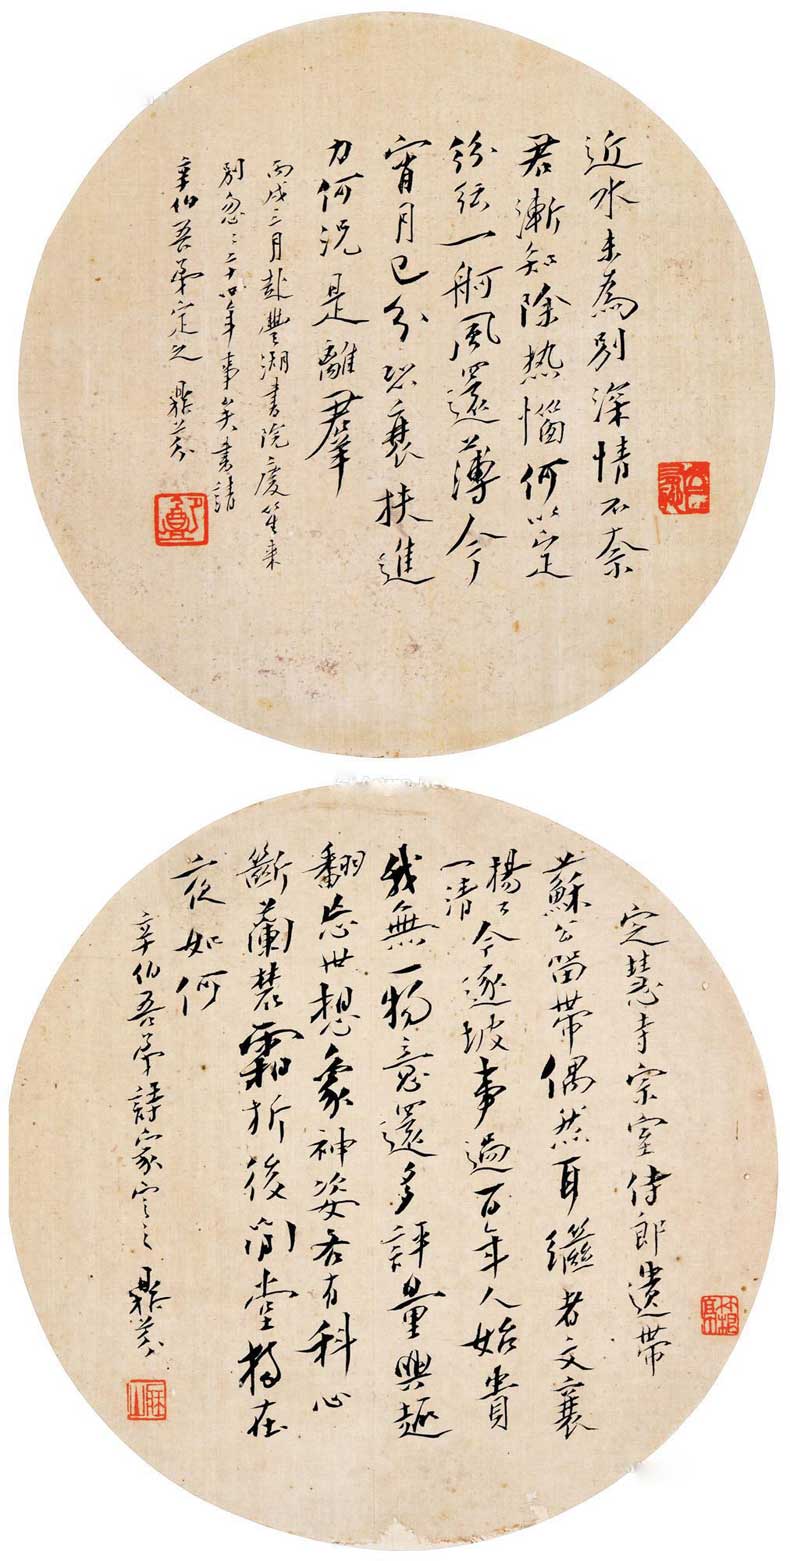 近水未為別深情不奈
君漸知除熱惱何以定
紛紜一舸風還薄今
宵月已分恐衰扶進
力何況是離羣
丙戌三月赴豐湖書院慶笙來
別忽忽二十四年事矣書請
辛伯吾弟定之 鼎芬
定慧寺宗室侍郎遺帶
蘇公留帶偶然耳繼者文襄
楊公一清今逐坡事過百年人始貴
我無一物意還多評量興趣
翻忘世想象神姿若有科心
斷蘭叢霜折後簡堂搆在
夜如何
辛伯吾弟詩家定之 鼎芬